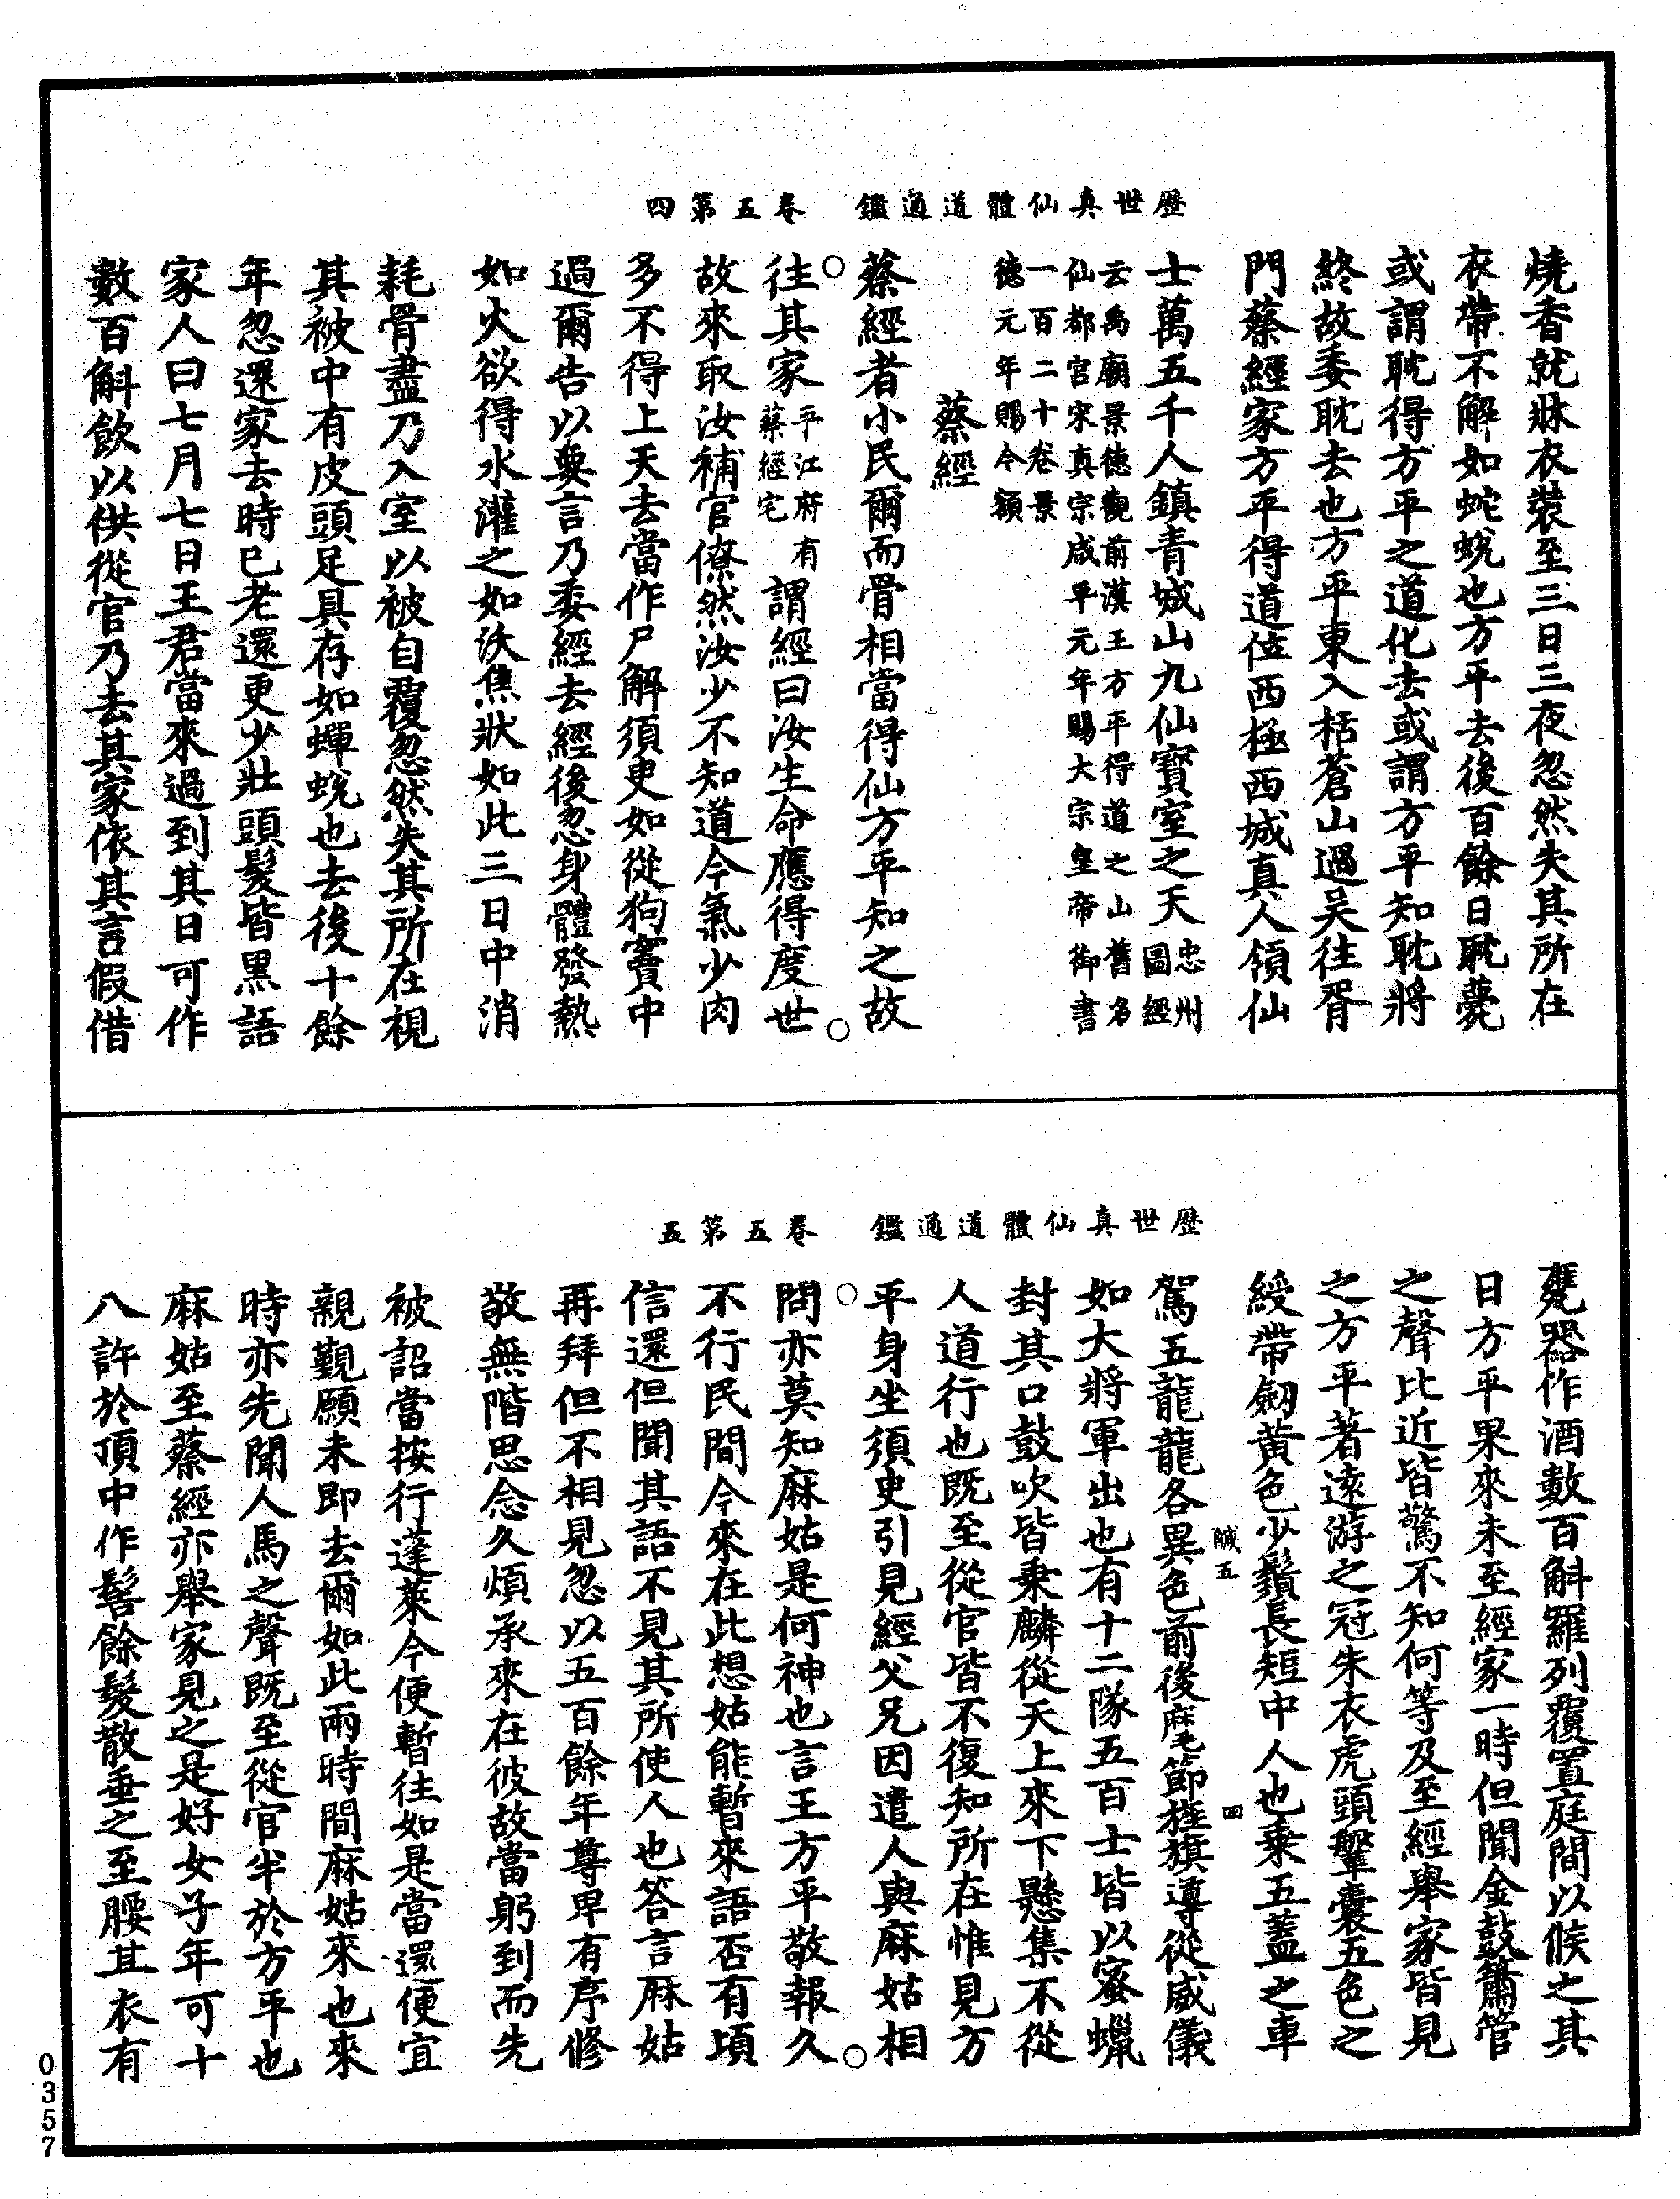 歷世真仙體道通鑑　卷五第四
燒香就牀衣裝至三日三夜忽然失其所在
衣帶不解如蛇蛻也方平去後百餘日耽薨
或謂耽得方平之道化去或謂方平知耽將
終故委耽去也方平東入栝蒼山過吳往胥
門蔡經家方平得道位西極西城真人領仙
士萬五千人鎮青城山九仙寶室之天忠州圖經
云禹廟景德觀前漢王方平得道之山舊名
仙都官宋真宗咸平元年賜大宗皇帝御書
一百二十卷景
德元年賜今額
蔡經
蔡經者小民爾而骨相當得仙方平知之故
往其家平江府有蔡經宅謂經曰汝生命應得度世
故來取汝補官僚然汝少不知道今氣少肉
多不得上天去當作尸解須臾如從狗竇中
過爾告以要言乃委經去經後忽身體發熱
如火欲得水灌之如沃焦狀如此三日中消
耗骨盡乃入室以被自覆忽然失其所在視
其被中有皮頭足具存如蟬蛻也去後十餘
年忽還家去時已老還更少壯頭髮皆黑語
家人曰七月七日王君當來過到其日可作
數百斛飲以供從官乃去其家依其言假借
歷世真仙體道通鑑　卷五第五
甕器作酒數百斛羅列覆置庭間以候之其
日方平果來未至經家一時但聞金鼓簫管
之聲比近皆驚不知何等及至經舉家皆見
之方平著遠游之冠朱衣虎頭鞶囊五色之
綬帶劒黃色少鬚長短中人也乘五蓋之車
鹹五　四
駕五龍龍各異色前後麾節旌旗導從威儀
如大將軍出也有十二隊五百士皆以蜜蠟
封其口鼓吹皆乘麟從天上來下懸集不從
人道行也既至從官皆不復知所在惟見方
平身坐須臾引見經父兄因遣人與麻姑相
問亦莫知麻姑是何神也言王方平敬報久
不行民間今來在此想姑能暫來語否有頃
信還但聞其語不見其所使人也答言麻姑
再拜但不相見忽以五百餘年尊卑有序修
敬無階思念久煩承來在彼故當躬到而先
被詔當按行蓬萊今便暫往如是當還便宜
親覲願未即去爾如此兩時間麻姑來也來
時亦先聞人馬之聲既至從官半於方平也
麻姑至蔡經亦舉家見之是好女子年可十
八許於頂中作髻餘髮散垂之至腰其衣有
0357